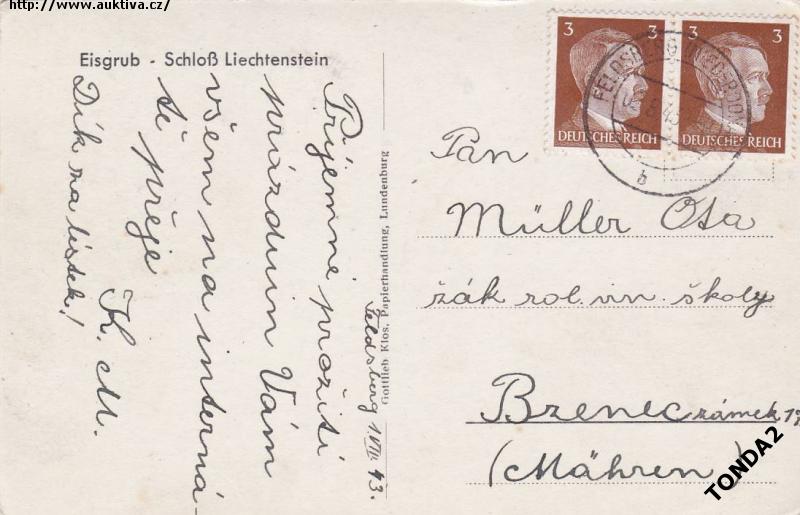 http://www.auktiva.cz/
Eisgrub - Schloß Liechtenstein
Příjemné prožití
prázdnin Vám
všem na interná-
tě přeje
K. M.
Dík za lístek!
Feldsberg 1.VIII 43.
Gottlieb Klos, Papierhandlung, Lundenburg
3
3
DEUTSCHES REICH
DEUTSCHES REICH
FELDSBERG
b
Pan
Müller Ota
žák rol. vin. školy
Bzenec zámek
(Mähren)
TONDA2